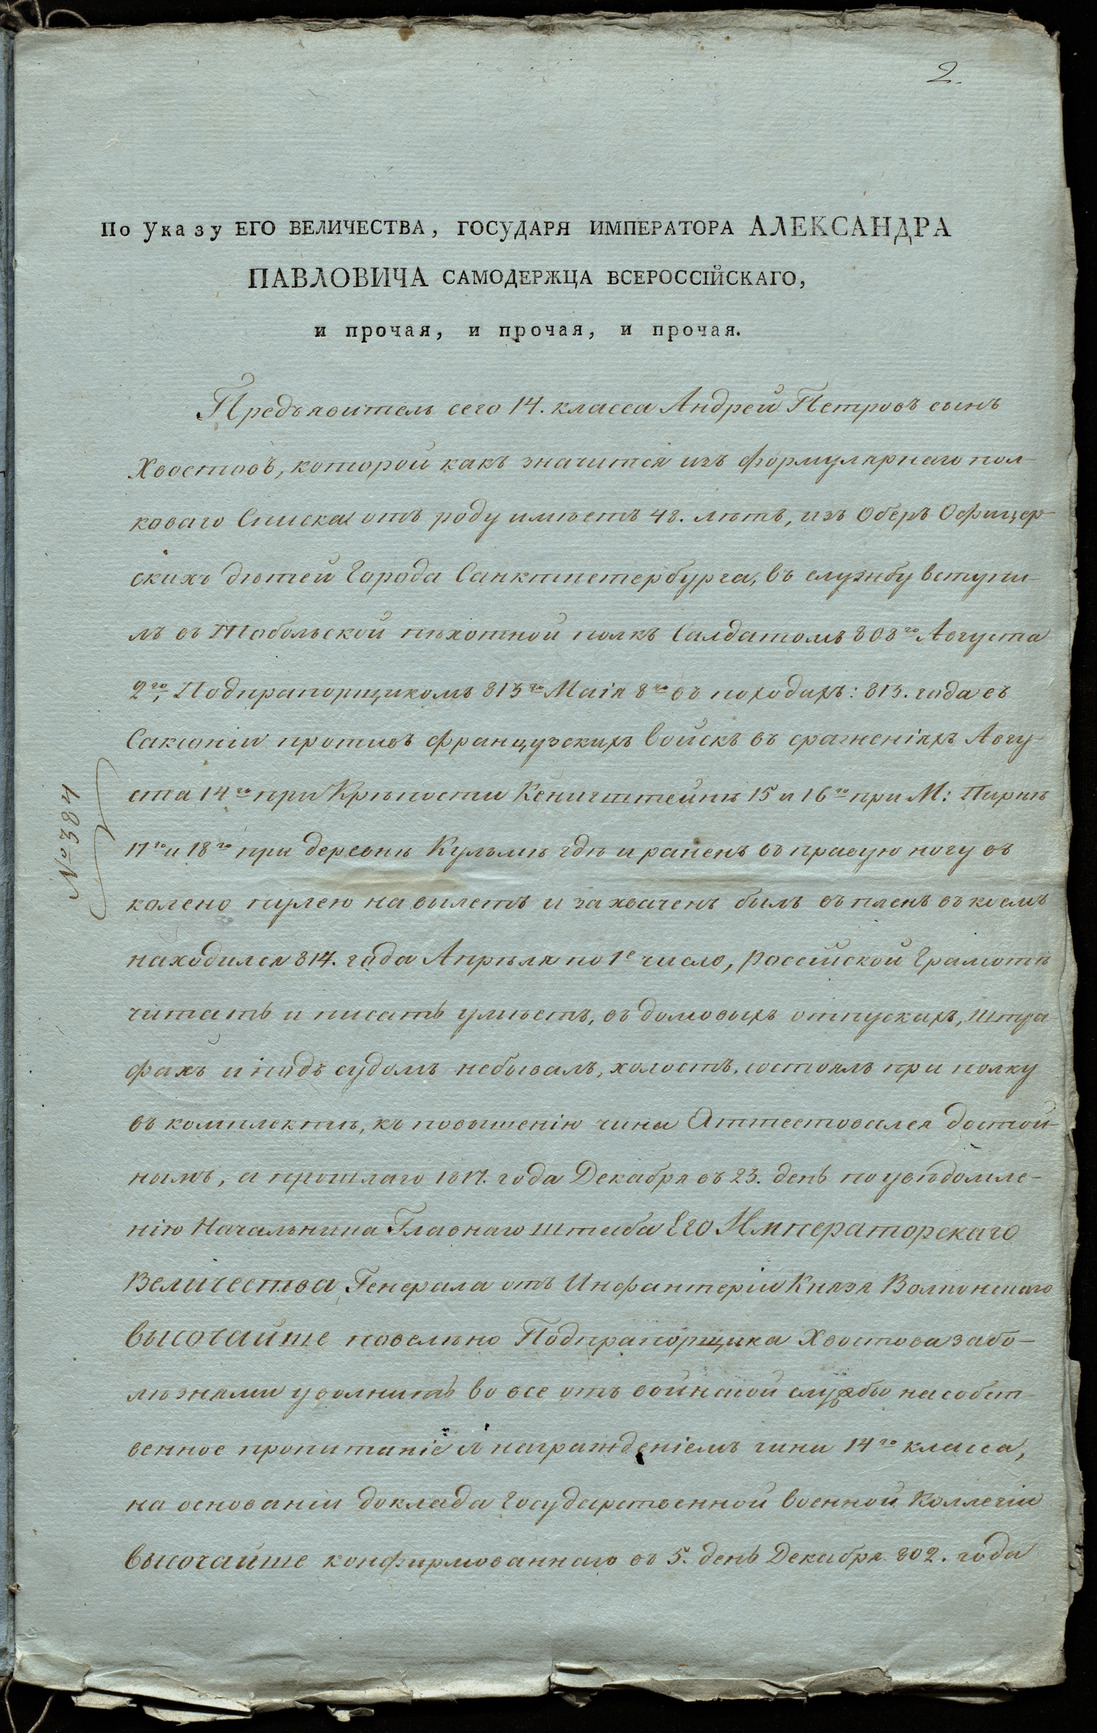 2.
По указу ЕГО ВЕЛИЧЕСТВА, ГОСУДАРЯ ИМПЕРАТОРА АЛЕКСАНДРА
ПАВЛОВИЧА САМОДЕРЖЦА ВСЕРОССІЙСКАГО,
и прочая, и прочая, и прочая.
Предъявитель сего 14. класса Андрей Петровъ сынъ
Хвостовъ, которой какъ значится изъ формулярнаго пол-
коваго Списка отъ роду имѣетъ 48. лѣтъ, изъ Оберъ Офицер-
скихъ дѣтей Города Санктпетербурга, въ службу вступи-
лъ въ Тобольской пѣхотной полкъ Салдатомъ 808го Августа
2го, Подпрапорщикомъ 813го Маія 8го въ походахъ: 813. года въ
Саксоніи противъ французскихъ войскъ въ сраженіяхъ Авгу-
ста 14го при Крѣпости Кенигштейнѣ 15 и 16го при М: Пирнѣ
17го и 18го при деревнѣ Кульмѣ гдѣ и раненъ въ правую ногу въ
колено пулею на вылетъ и захваченъ былъ въ пленъ въ коемъ
находился 814. года Апрѣля по 1е число, россійской Грамотѣ
читать и писать умѣетъ, въ домовыхъ отпускахъ, штра
фахъ и подъ судомъ небывалъ, холостъ, состоялъ при полку
въ комплектѣ, къ повышенію чина Аттестовался достой-
нымъ, а прошлаго 1817. года Декабря въ 23. день по увѣдомле-
нію Начальника Главнаго штаба Его Императорскаго
Величества, Генерала отъ Инфантеріи Князя Волконскаго
высочайше повелѣно Подпрапорщика Хвостова забо-
лѣзнями уволнить во все отъ воинской службы на собст-
венное пропитаніе и награжденіемъ чина 14го класса,
на основаніи доклада Государственной Военной Коллегіи
высочайше конфирмованнаго въ 5. день Декабря 802. года
№ 384